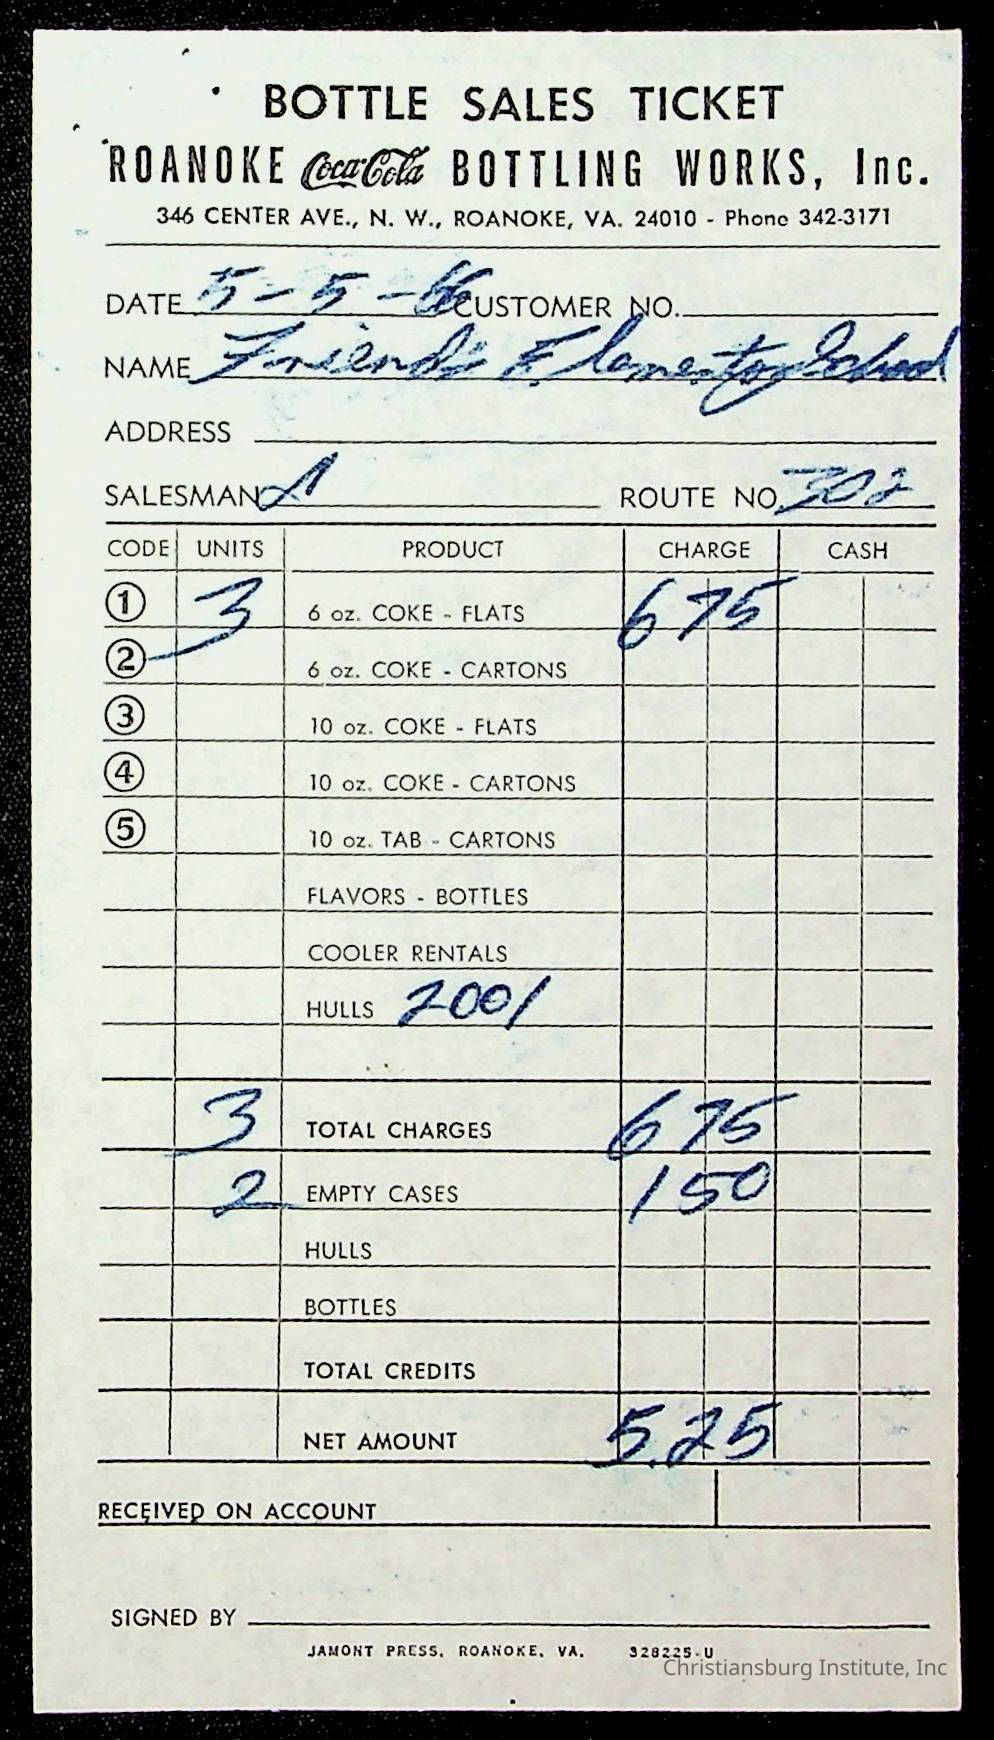 BOTTLE SALES TICKET
ROANOKE Coca-Cola BOTTLING WORKS, Inc.
346 CENTER AVE., N. W., ROANOKE, VA. 24010 - Phone 342-3171
DATE 5-5-66 CUSTOMER NO.
NAME Friends Elementary School
ADDRESS
SALESMAN ROUTE NO. 302
CODE UNITS PRODUCT CHARGE CASH
1 3 6 oz. COKE - FLATS 6 75
2 6 oz. COKE - CARTONS
3 10 oz. COKE - FLATS
4 10 oz. COKE - CARTONS
5 10 oz. TAB - CARTONS
FLAVORS - BOTTLES
COOLER RENTALS
HULLS 2001
3 TOTAL CHARGES 6 75
2 EMPTY CASES 1 50
HULLS
BOTTLES
TOTAL CREDITS
NET AMOUNT 5.25
RECEIVED ON ACCOUNT
SIGNED BY
JAMONT PRESS, ROANOKE, VA. 328225-U
Christiansburg Institute, Inc